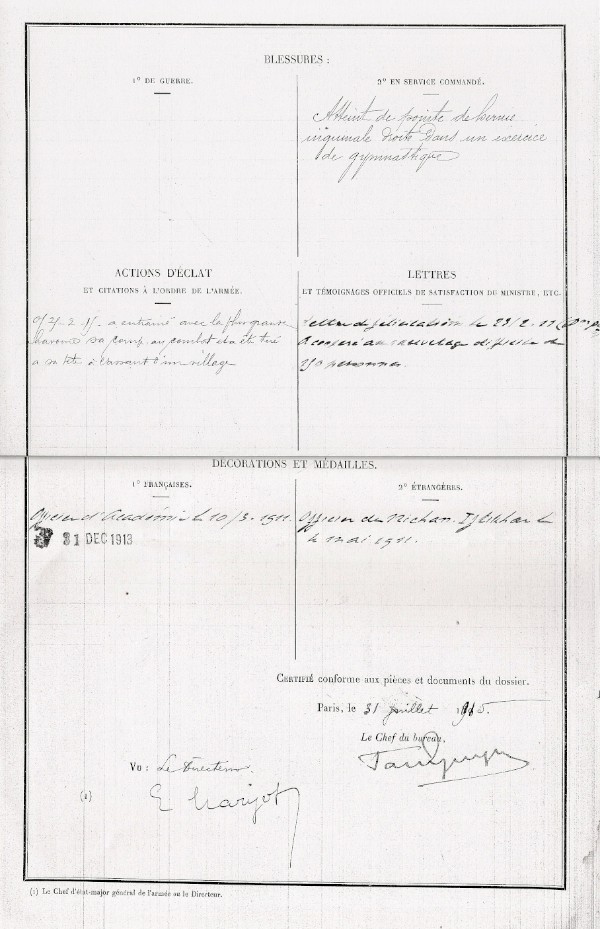 BLESSURES :
1° DE GUERRE.
2° EN SERVICE COMMANDÉ.
Atteint de pointe de hernie
inguinale droite dans un exercice
de gymnastique
ACTIONS D'ÉCLAT
ET CITATIONS À L'ORDRE DE L'ARMÉE.
a entraîné avec la plus grande
sa comp. au combat et a été tué
à sa tête à l'assaut d'un village
LETTRES
ET TÉMOIGNAGES OFFICIELS DE SATISFACTION DU MINISTRE, ETC.
Lettre de félicitation le 23/2-11
A coopéré au sauvetage de
150 personnes.
DÉCORATIONS ET MÉDAILLES.
1° FRANÇAISES.
2° ÉTRANGÈRES.
Officier d'Académie le 10/3-1911.
31 DEC 1913
Officier du Nichan Iftikhar le
4 mai 1911.
CERTIFIÉ conforme aux pièces et documents du dossier.
Paris, le 31 juillet 1915.
Le Chef du bureau,
Vu : Le Directeur
(1)
(1) Le Chef d'état-major général de l'armée ou le Directeur.